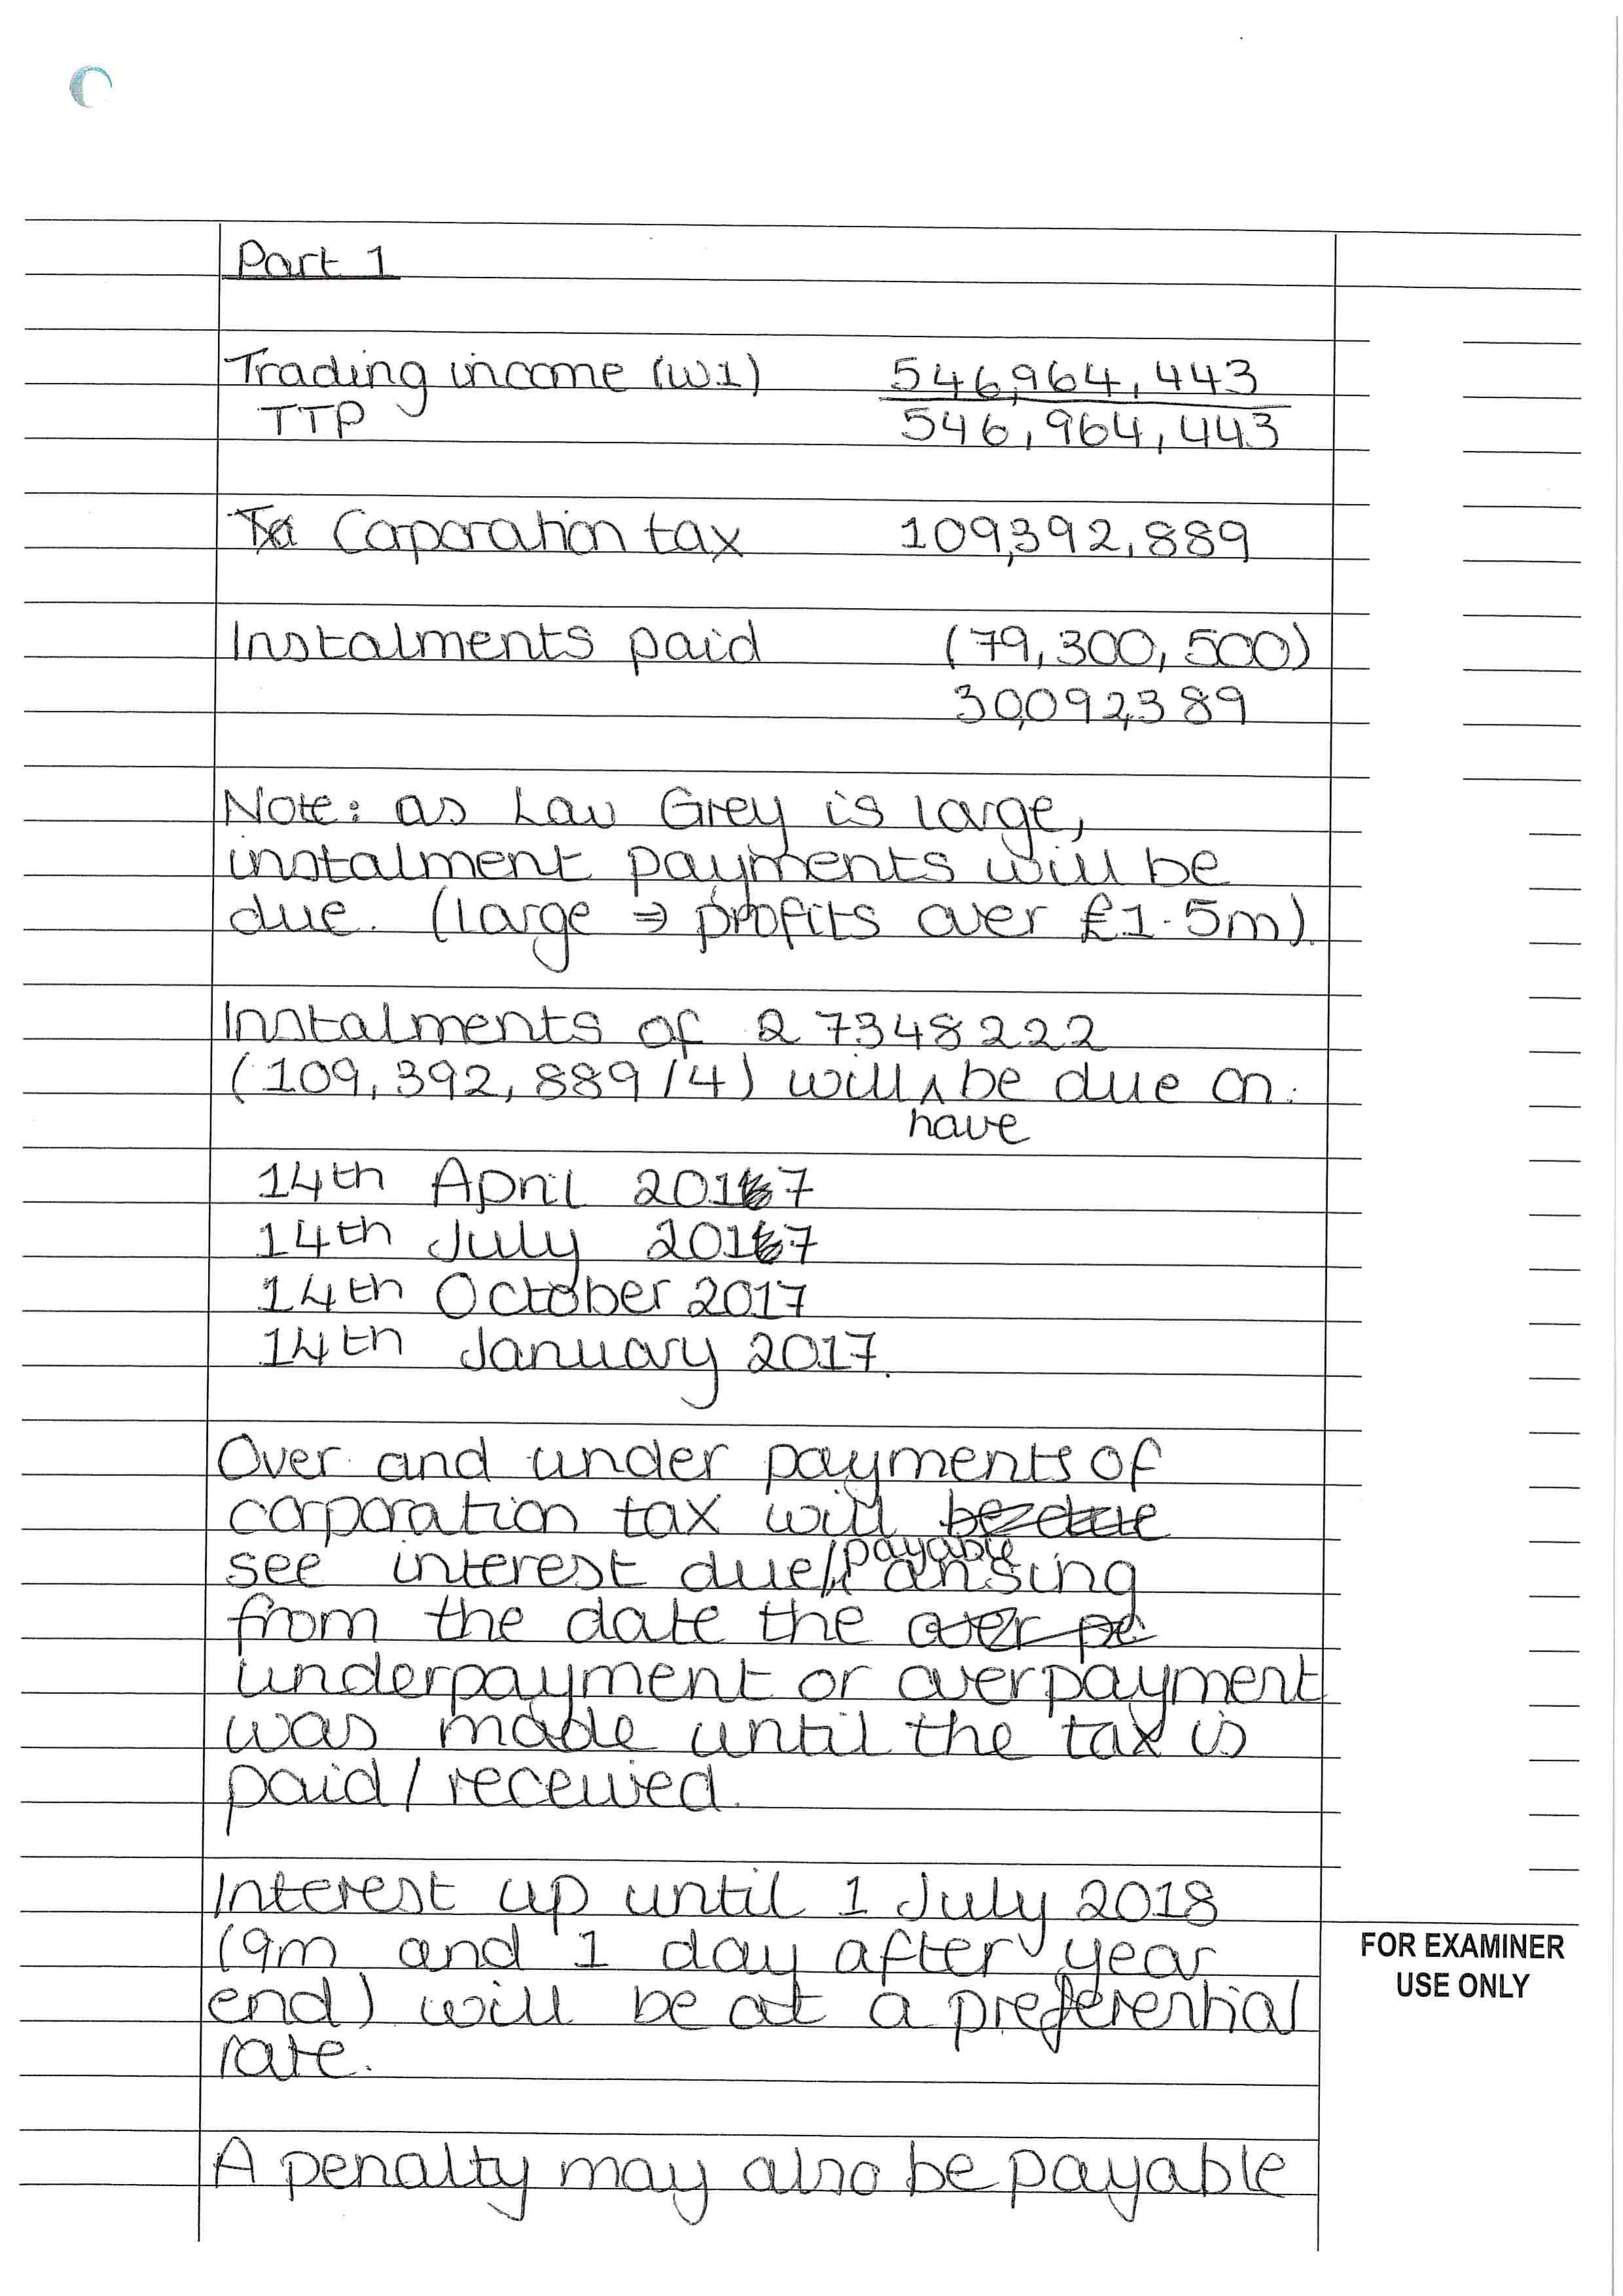 Part 1
Trading income (W1) 546,964,443
TTP 546,964,443
Corporation tax 109,392,889
Instalments paid (79,300,500)
30,092,389
Note: as Lau Grey is large,
instalment payments will be
due. (large ⇒ profits over £1.5m).
Instalments of 27348222
(109,392,889/4) will ∧ be due on:
have
14th April 2017
14th July 2017
14th October 2017
14th January 2017.
Over and under payments of
corporation tax will be due
see interest due/payable arising
from the date the over pe
underpayment or overpayment
was made until the tax is
paid/received.
Interest up until 1 July 2018
(9m and 1 day after year
end) will be at a preferential
rate.
A penalty may also be payable
FOR EXAMINER
USE ONLY